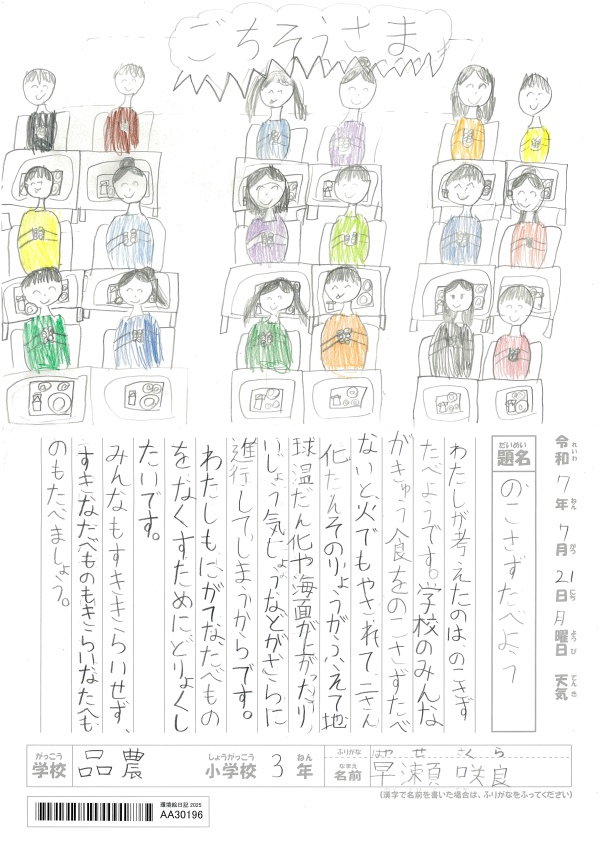 ごちそうさま
令和7年7月21日月曜日 天気
れいわ ねん がつ にち ようび てんき
だいめい
題名
のこさずたべよう
わたしが考えたのは、のこさず
たべようです。学校のみんな
がきゅう食をのこさずたべ
ないと火でもやされて、二さん
化たんそのりょうがふえて地
球温だん化や海面が上がったり
いじょう気しょうなどがさらに
進行してしまうからです。
わたしもにがてなたべもの
をなくすためにどりょくし
たいです。
みんなもすききらいせず、
すきなたべものもきらいなたべも
のもたべましょう。
がっこう しょうがっこう ねん
学校 品農 小学校 3年
ふりがな はやせ さくら
なまえ
名前 早瀬 咲良
(漢字で名前を書いた場合は、ふりがなをふってください)
環境絵日記 2025
AA30196